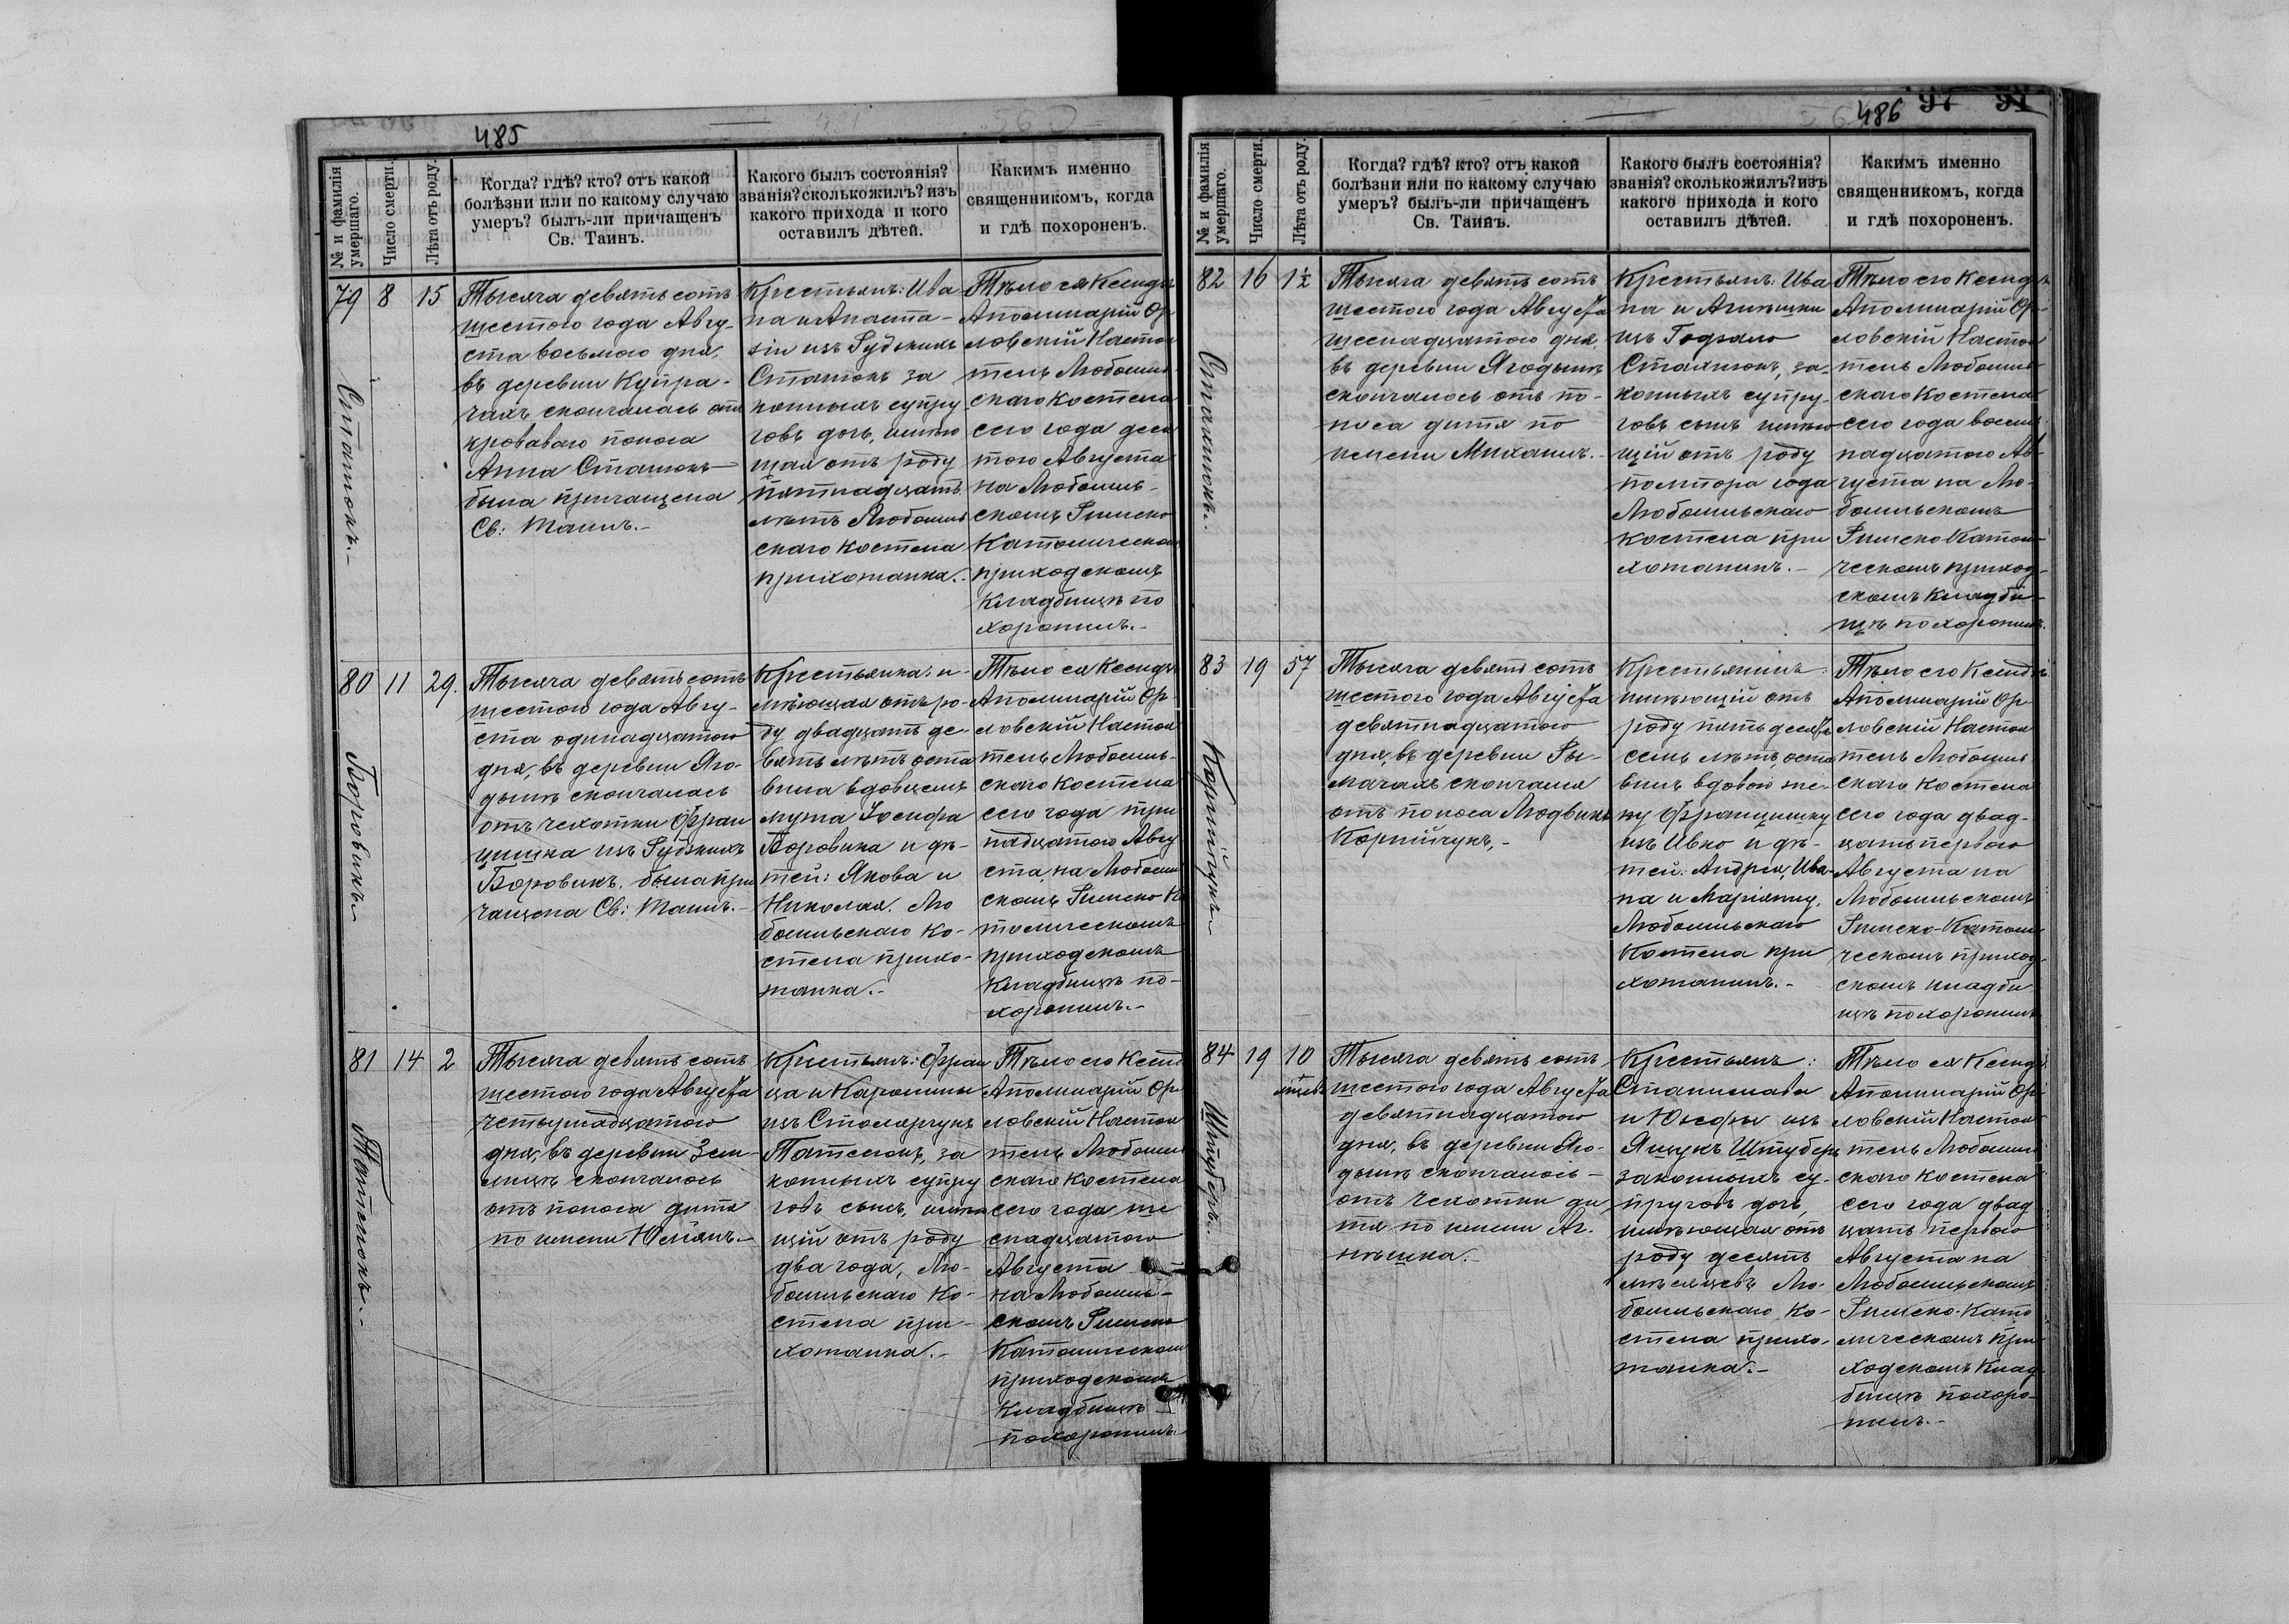 485
№ и фамилія умершаго.
Число смерти.
Лѣта отъ роду.
Когда? гдѣ? кто? отъ какой
болѣзни или по какому случаю
умеръ? былъ-ли причащенъ
Св. Таинъ.
Какого былъ состоянія?
званія? сколько жилъ? изъ
какого прихода и кого
оставилъ дѣтей.
Какимъ именно
священникомъ, когда
и гдѣ похороненъ.
79
8
15
Тысяча девятьсотъ
шестого года Авгу-
ста восьмого дня,
въ деревни Купра-
чахъ скончалась отъ
кроваваго поноса
Анна
была причащена
Св: Таинъ.-
Крестьянъ: Ива
на и Анаста-
сіи изъ
за
конныхъ супру
говъ дочь, имѣю
щая отъ роду
пятнадцать
лѣтъ Любомль
скаго костела
прихожанка.-
Тѣло ея Ксендзъ
Аполинарій Ор
ловскій Настоя
тель Любомль-
скаго костела
сего года деся
того Августа
на Любомль-
скомъ Римско
Католическомъ
приходскомъ
кладбищѣ по
хоронилъ.-
80
11
29.
Боровикъ
Тысяча девятьсотъ
шестого года Авгу-
ста одинадцатого
дня, въ деревни Яго-
дынѣ скончалась
отъ чахотки Фран
цишка изъ
Боровикъ. была при
чащена Св: Таинъ.-
Крестьянка: и-
мѣющая отъ ро-
ду двадцать де-
вять лѣтъ оста
вила вдовцемъ
мужа Іосифа
Боровика и дѣ-
тей: Якова и
Николая. Лю
бомльскаго ко-
стела прихо-
жанка.-
Тѣло ея Ксендзъ
Аполинарій Ор
ловскій Настоя
тель Любомль-
скаго костела
сего года три
надцатого Авгу
ста, на Любомль
скомъ Римско Ка
толическомъ
приходскомъ
кладбищѣ по-
хоронилъ.-
81
14
2
Тысяча девятьсотъ
шестого года Августа
четырнадцатого
дня, въ деревни Зем-
лицѣ скончалось
отъ поноса дитя
по имени Юліянъ.-
Крестьянъ: Фран
ца и Каролины
изъ Столярчукъ
за
конныхъ супру
говъ сынъ, имѣю
щій отъ роду
два года, Лю-
бомльскаго ко-
стела при-
хожанка.-
Тѣло его Ксендзъ
Аполинарій Ор
ловскій Настоя
тель Любомль
скаго костела
сего года ше
снадцатого
Августа
на Любомль-
скомъ Римско
Католическомъ
приходскомъ
кладбищѣ
похоронилъ.
486 97 91
№ и фамилія умершаго.
Число смерти.
Лѣта отъ роду.
Когда? гдѣ? кто? отъ какой
болѣзни или по какому случаю
умеръ? былъ-ли причащенъ
Св. Таинъ.
Какого былъ состоянія?
званія? сколько жилъ? изъ
какого прихода и кого
оставилъ дѣтей.
Какимъ именно
священникомъ, когда
и гдѣ похороненъ.
82
16
1½
Стахнюкъ.
Тысяча девятьсотъ
шестого года Августа
шеснадцатого дня,
въ деревни Ягодынѣ
скончалось отъ по-
носа дитя по
имени Михаилъ.-
Крестьянъ: Ива
на и Агнѣшки
изъ
Стахнюкъ, за-
конныхъ супру-
говъ сынъ имѣю
щій отъ роду
полтора года
Любомльскаго
костела при
хожанинъ.-
Тѣло его Ксендзъ
Аполинарій Ор-
ловскій Настоя
тель Любомль-
скаго костела
сего года восем
надцатого Ав-
густа на Лю-
бомльскомъ
Римско Католи-
ческомъ приход-
скомъ кладби-
щѣ похоронилъ.
83
19
57
Корнійчукъ
Тысяча девятьсотъ
шестого года Августа
девятнадцатого
дня, въ деревни Ры-
мачахъ скончался
отъ поноса Людвикъ
Корнійчукъ,-
Крестьянинъ:
имѣющій отъ
роду пятьдесятъ
семь лѣтъ, оста
вилъ вдовою же-
ну Францишку
изъ Ивко и дѣ-
тей: Андрея, Ива-
на и Маріянну,
Любомльскаго
костела при
хожанинъ.-
Тѣло его Ксендзъ
Аполинарій Ор-
ловскій Настоя
тель Любомль
скаго костела
сего года двад-
цать первого
Августа на
Любомльскомъ
Римско-Католи
ческомъ приход-
скомъ кладби
щѣ похоронилъ
84
19
10
Штуберъ.
Тысяча девятьсотъ
шестого года Августа
девятнадцатого
дня, въ деревни Яго-
дынѣ скончалось-
отъ чахотки ди
тя по имени Аг-
нѣшка.-
Крестьянъ:
Станислава
и Юзефы изъ
Ящукъ Штуберъ
законныхъ су-
пруговъ дочь,
имѣющая отъ
роду десять
мѣсяцевъ Лю-
бомльскаго ко-
стела прихо-
жанка.-
Тѣло ея Ксендзъ
Аполинарій Ор-
ловскій Настоя
тель Любомль
скаго костела
сего года двад
цать первого
Августа на
Любомльскомъ
Римско-Като
лическомъ при-
ходскомъ клад-
бищѣ похоро-
нилъ.-